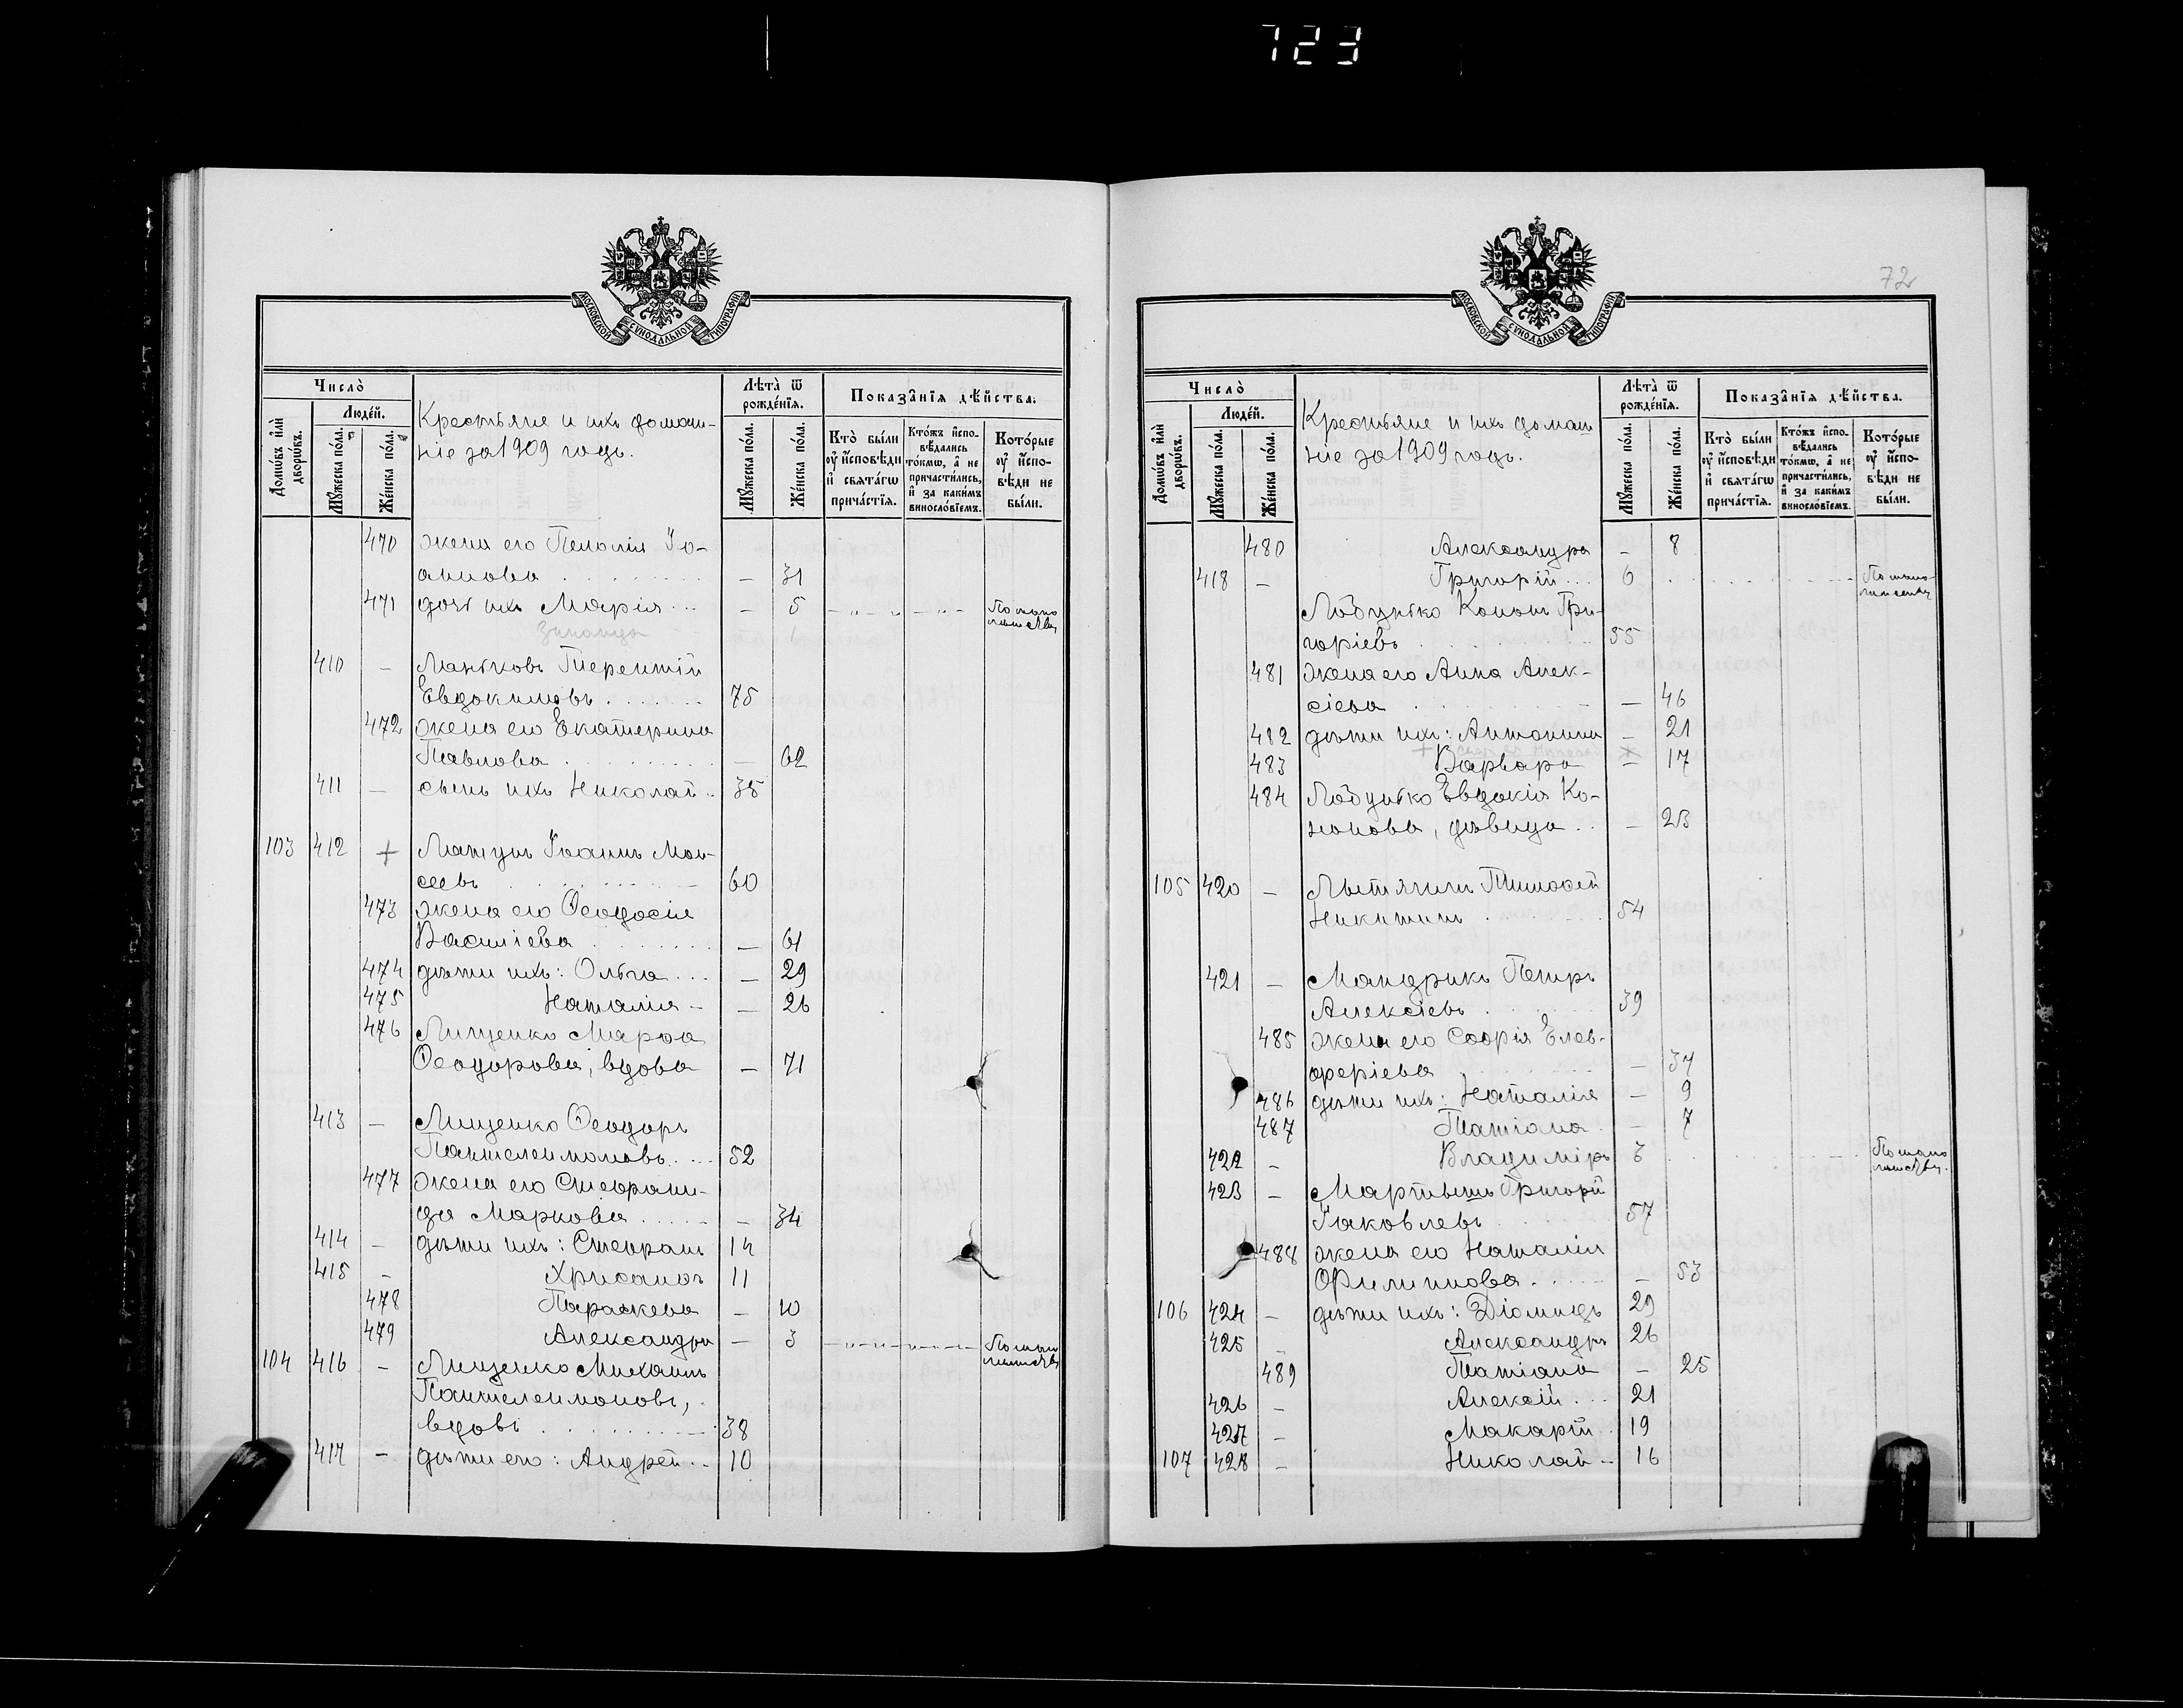 723
МОСКОВСКОЙ СѴНОДАЛЬНОЙ ТИПОГРАФІИ
Число̀
Домѡвъ и҆лѝ дворѡвъ.
Люде́й.
Мꙋ́жеска по́ла.
Же́нска по́ла.
Крестьяне и ихъ домаш-
ніе за 1909 годъ.
Лѣ́та ѿ рожде́нїѧ.
Мꙋ́жеска по́ла.
Же́нска по́ла.
Показа̑нїѧ дѣ́йства.
Кто̀ бы́ли ᲂу҆ и҆́сповѣди и҆ свѧта́гѡ прича́стїѧ.
Кто́жъ и҆спо- вѣ́дались то́кмѡ, а҆ не причасти́лись, и҆ за каки́мъ виносло́вїемъ.
Кото́рые ᲂу҆ и҆́спо- вѣди не бы́ли.
470 жена его Пелагія Іо-
аннова - 31
471 дочь ихъ Марія - 5 По мало
лѣтству
Зинаида 1
410 - Маньковъ Терентій
Евдокимовъ 75
472 жена его Екатерина
Павлова - 62
411 - сынъ ихъ Николай 35
103 412 + Матушъ Іоаннъ Мои-
сеевъ 60
473 жена его Ѳеодосія
Василіева - 61
474 дѣти ихъ: Ольга - 29
475 Наталія - 26
476 Лищенко Марѳа
Ѳеодорова, вдова - 71
413 - Лищенко Ѳеодоръ
Пантелеимоновъ 52
477 жена его Стефани-
да Маркова - 34
414 - дѣти ихъ: Стефанъ 14
415 - Хрисанѳъ 11
478 Параскева - 10
479 Александра - 3 По мало
лѣтству
104 416 - Лищенко Михаилъ
Пантелеимоновъ,
вдовъ 38
417 - дѣти его: Андрей 10
72
МОСКОВСКОЙ СѴНОДАЛЬНОЙ ТИПОГРАФІИ
Число̀
Домѡвъ и҆лѝ дворѡвъ.
Люде́й.
Мꙋ́жеска по́ла.
Же́нска по́ла.
Крестьяне и ихъ домаш
ніе за 1909 годъ.
Лѣ́та ѿ рожде́нїѧ.
Мꙋ́жеска по́ла.
Же́нска по́ла.
Показа̑нїѧ дѣ́йства.
Кто̀ бы́ли ᲂу҆ и҆́сповѣди и҆ свѧта́гѡ прича́стїѧ.
Кто́жъ и҆спо- вѣ́дались то́кмѡ, а҆ не причасти́лись, и҆ за каки́мъ виносло́вїемъ.
Кото́рые ᲂу҆ и҆́спо- вѣди не бы́ли.
480 Александра - 8
418 - Григорій 6 По мало-
лѣтству
Лобунько Кононъ Гри-
горіевъ 55
481 жена его Анна Алек-
сіева - 46
482 дѣти ихъ: Антонина - 21
483 Варвара - 17
484 Лобунько Евдокія Ко-
нонова, дѣвица - 23
105 420 - Лытягинъ Тимоѳей
Никитинъ 54
421 - Мандрикъ Петръ
Алексіевъ 39
485 жена его Софія Елев-
феріева - 34
486 дѣти ихъ: Наталія - 9
487 Татіана - 7
422 - Владиміръ 3 По мало
лѣтству
423 - Мартынъ Григорій
Іаковлевъ 57
488 жена его Наталія
Филиппова - 53
106 424 - дѣти ихъ: Діомидъ 29
425 - Александръ 26
489 Татіана - 25
426 - Алексій 21
427 - Макарій 19
107 428 - Николай 16